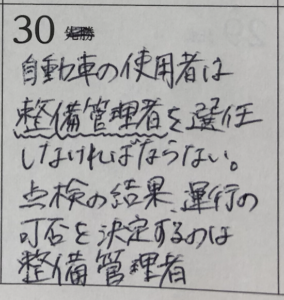 30 先勝
自動車の使用者は
整備管理者を選任
しなければならない。
点検の結果、運行の
可否を決定するのは
整備管理者